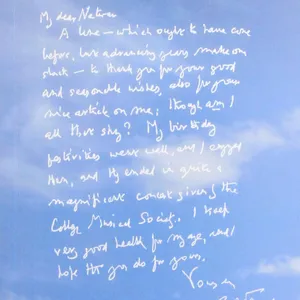 My dear Natwar
A line — which ought to have come
before, but advancing years make one
slack — to thank you for your good
and seasonable wishes, also for your
nice article on me; though am I
all that shy? My birthday
festivities went well, and I enjoyed
them, and they ended in quite a
magnificent concert given by the
College Musical Society. I keep
very good health for my age, and I
hope that you do for yours.
Yours